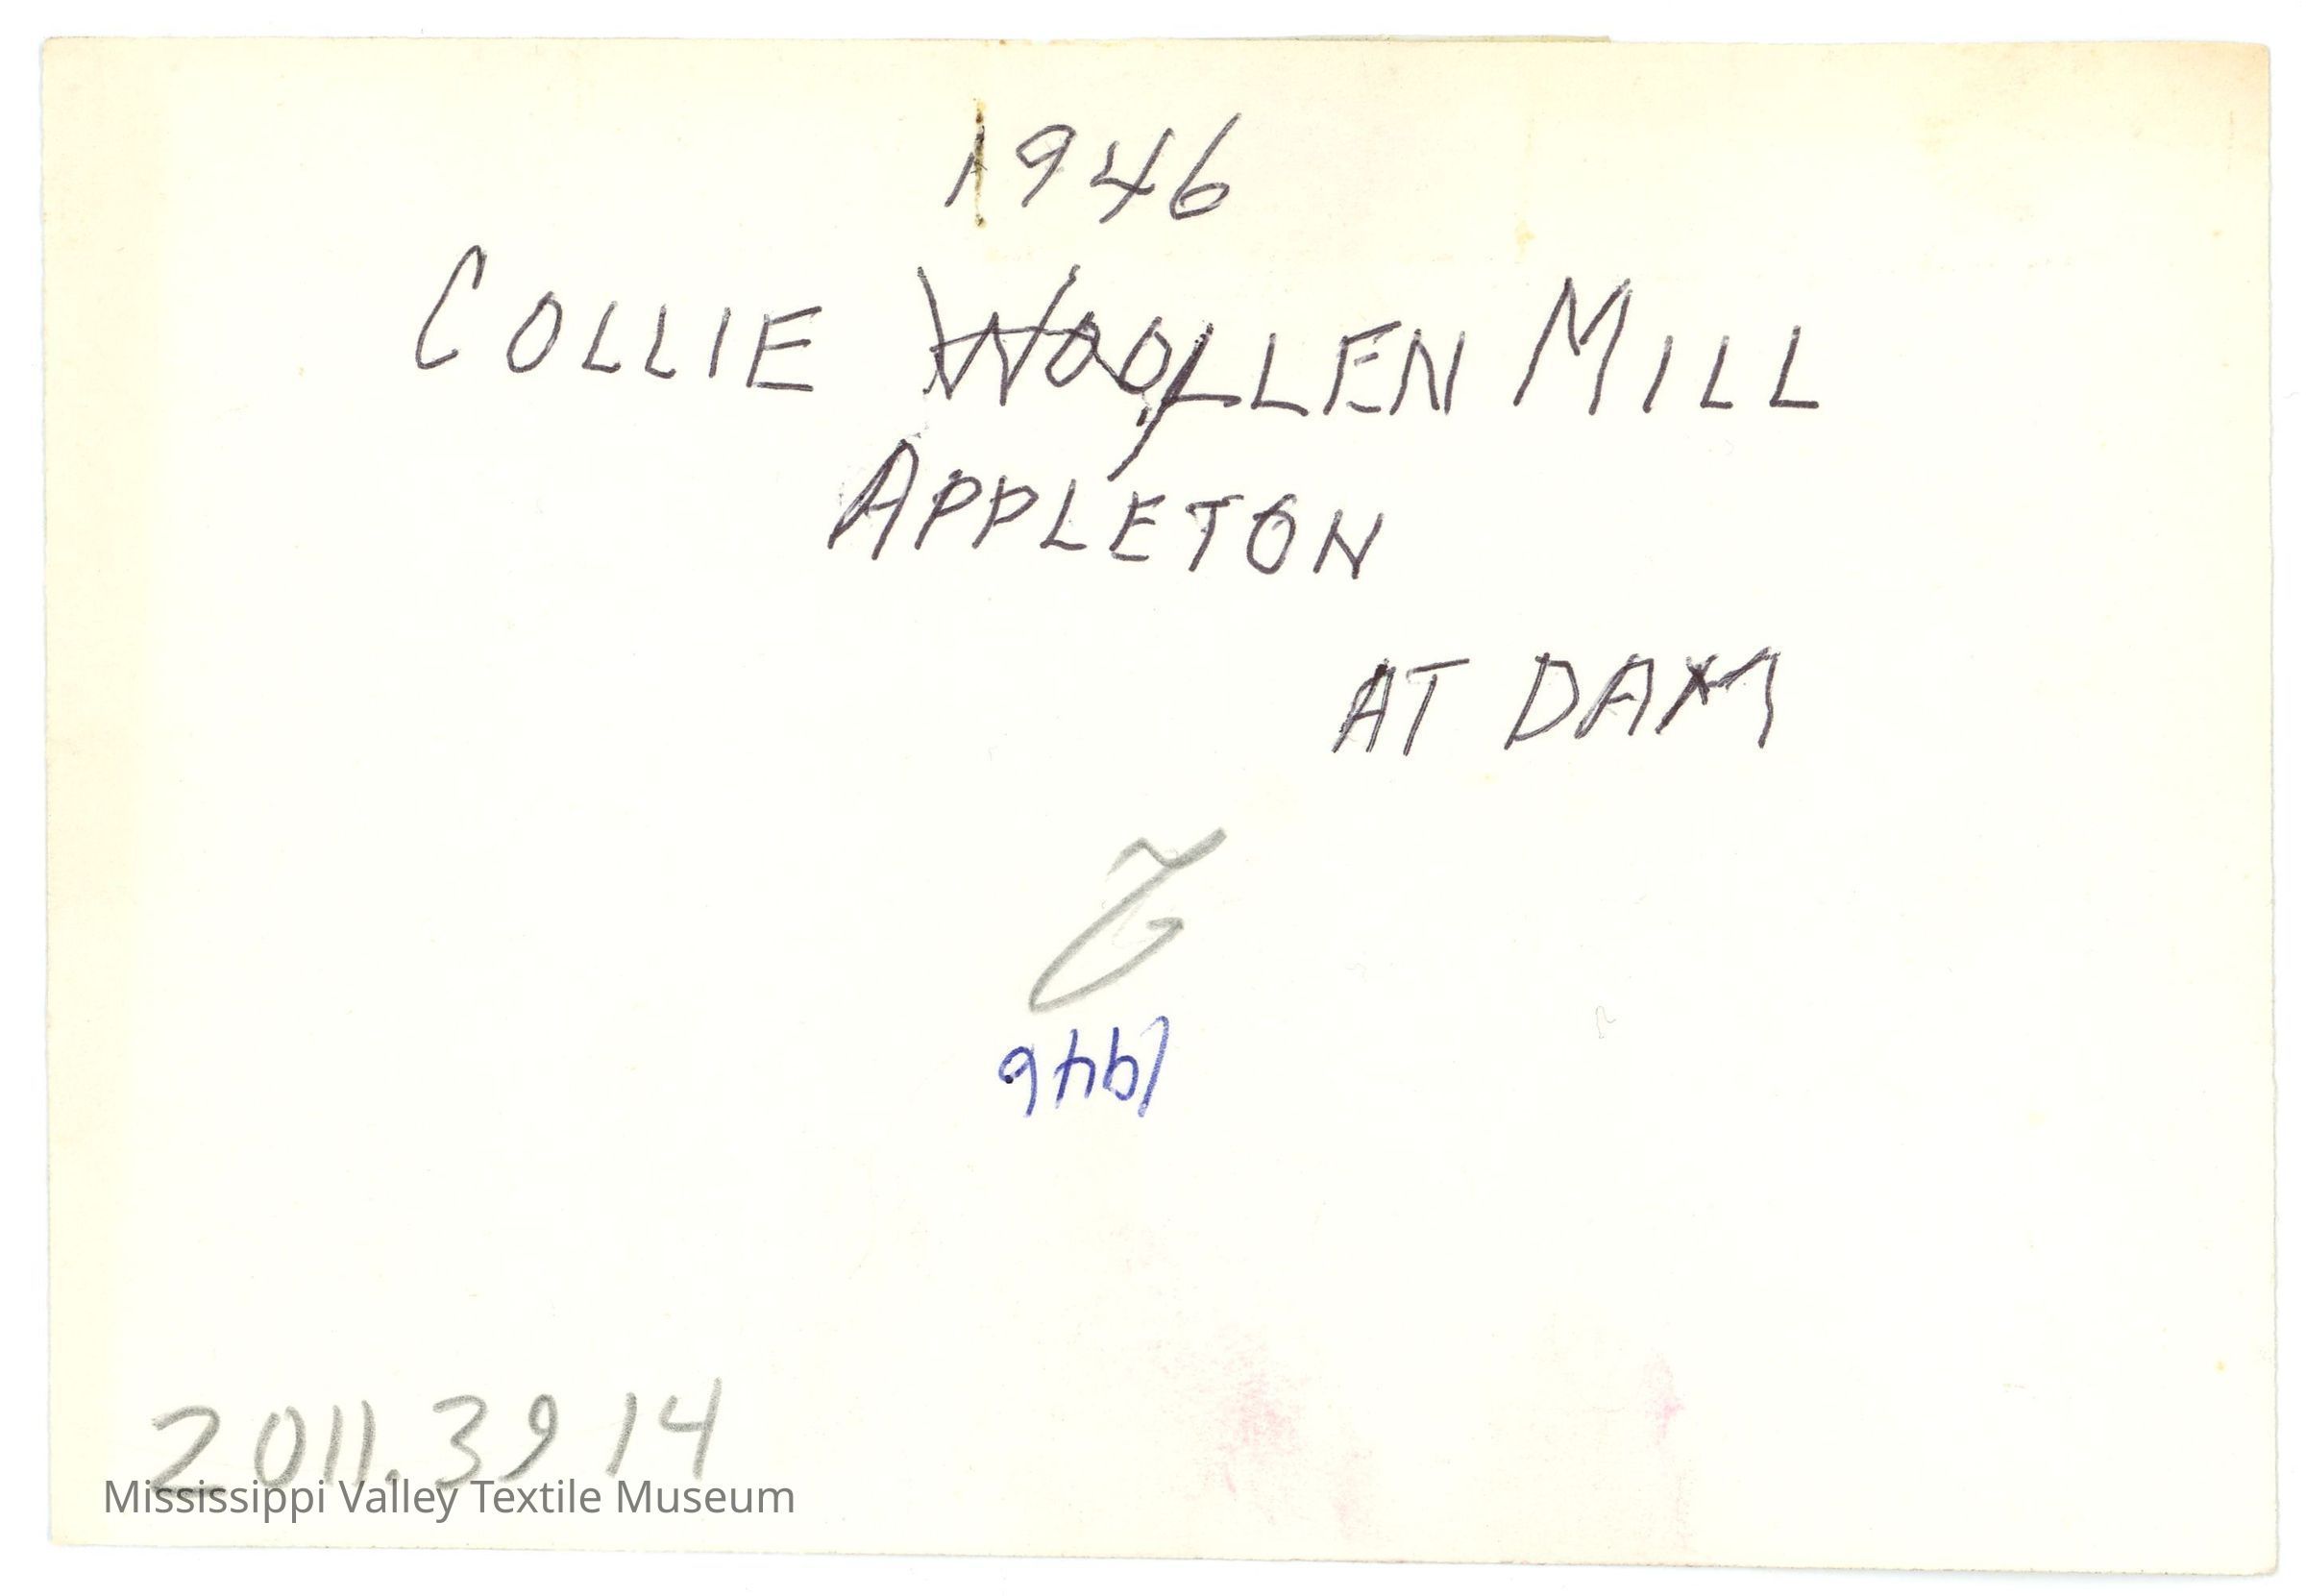 1946
COLLIE WOOLLEN MILL
APPLETON
AT DAM
1946
2011.39 14
Mississippi Valley Textile Museum